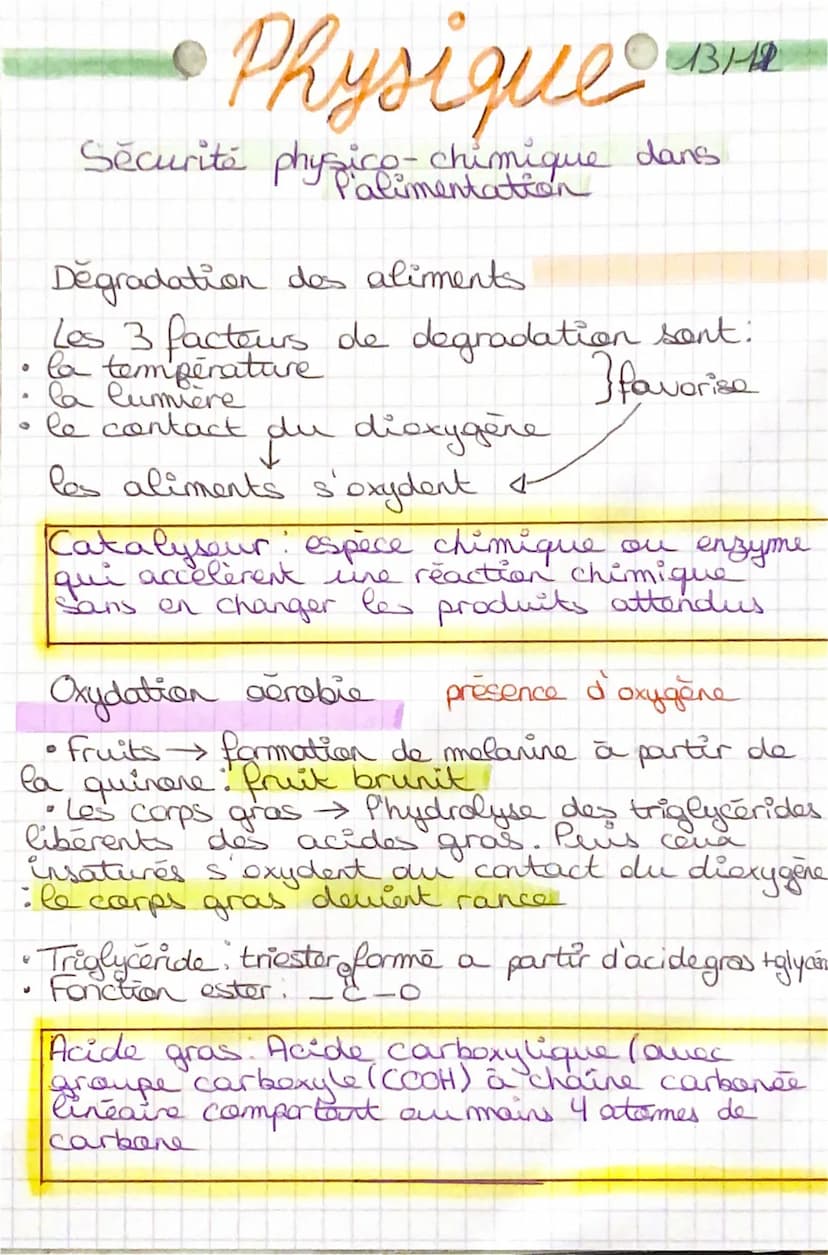 Physique
13/12
Sécurité physico-chimique dans
l'alimentation
Dégradation des aliments
Les 3 facteurs de degradation sont:
• la température
• la lumière
} favorise
• le contact du dioxygène
↓
les aliments s'oxydent
Catalyseur: espèce chimique ou enzyme
qui accélèrent une réaction chimique
sans en changer les produits attendus
Oxydation aérobie présence d'oxygène
• Fruits → formation de melanine à partir de
la quinone: fruit brunit
• Les corps gras → l'hydrolyse des triglycérides
libérents des acides gras. Puis ceux
insaturés s'oxydent au contact du dioxygène
: le corps gras devient rance
• Triglycéride: triester formé a partir d'acide gras +glycér
• Fonction ester: _C-O
O
Acide gras: Acide carboxylique (avec
groupe carboxyle (COOH) à chaîne carbonée
linéaire comportant au moins 4 atomes de
carbone